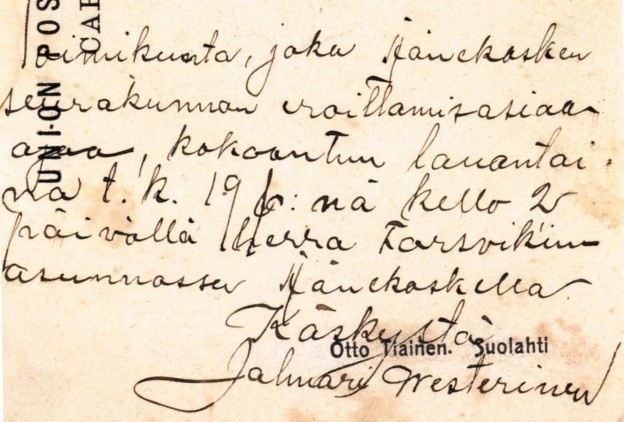 UNION POS
CAR
toimikunta, joka Äänekosken
seurakunnan eroittamisasiaa
ajaa, kokoontuu lauantai-
na t. k. 19 p:nä kello 2
päivällä herra Forsvik'in
asunnossa Äänekoskella
Käskystä
Otto Tiainen. Suolahti
Jalmari Westerinen